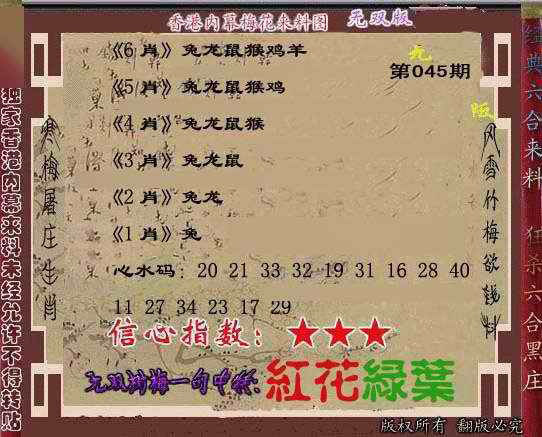 香港内幕梅花来料图 无双版
《6 肖》兔龙鼠猴鸡羊
《5 肖》兔龙鼠猴鸡
《4 肖》兔龙鼠猴
《3 肖》兔龙鼠
《2 肖》兔龙
《1 肖》兔
第045期
心水码: 20 21 33 32 19 31 16 28 40
11 27 34 23 17 29
信心指数: ★★★
无双树梅一句中特:紅花緑葉
独家香港内幕来料未经允许不得转贴
寒梅屠庄生肖
风雪竹梅欲钱料
经典六合来料 狂杀六合黑庄
版权所有 翻版必究